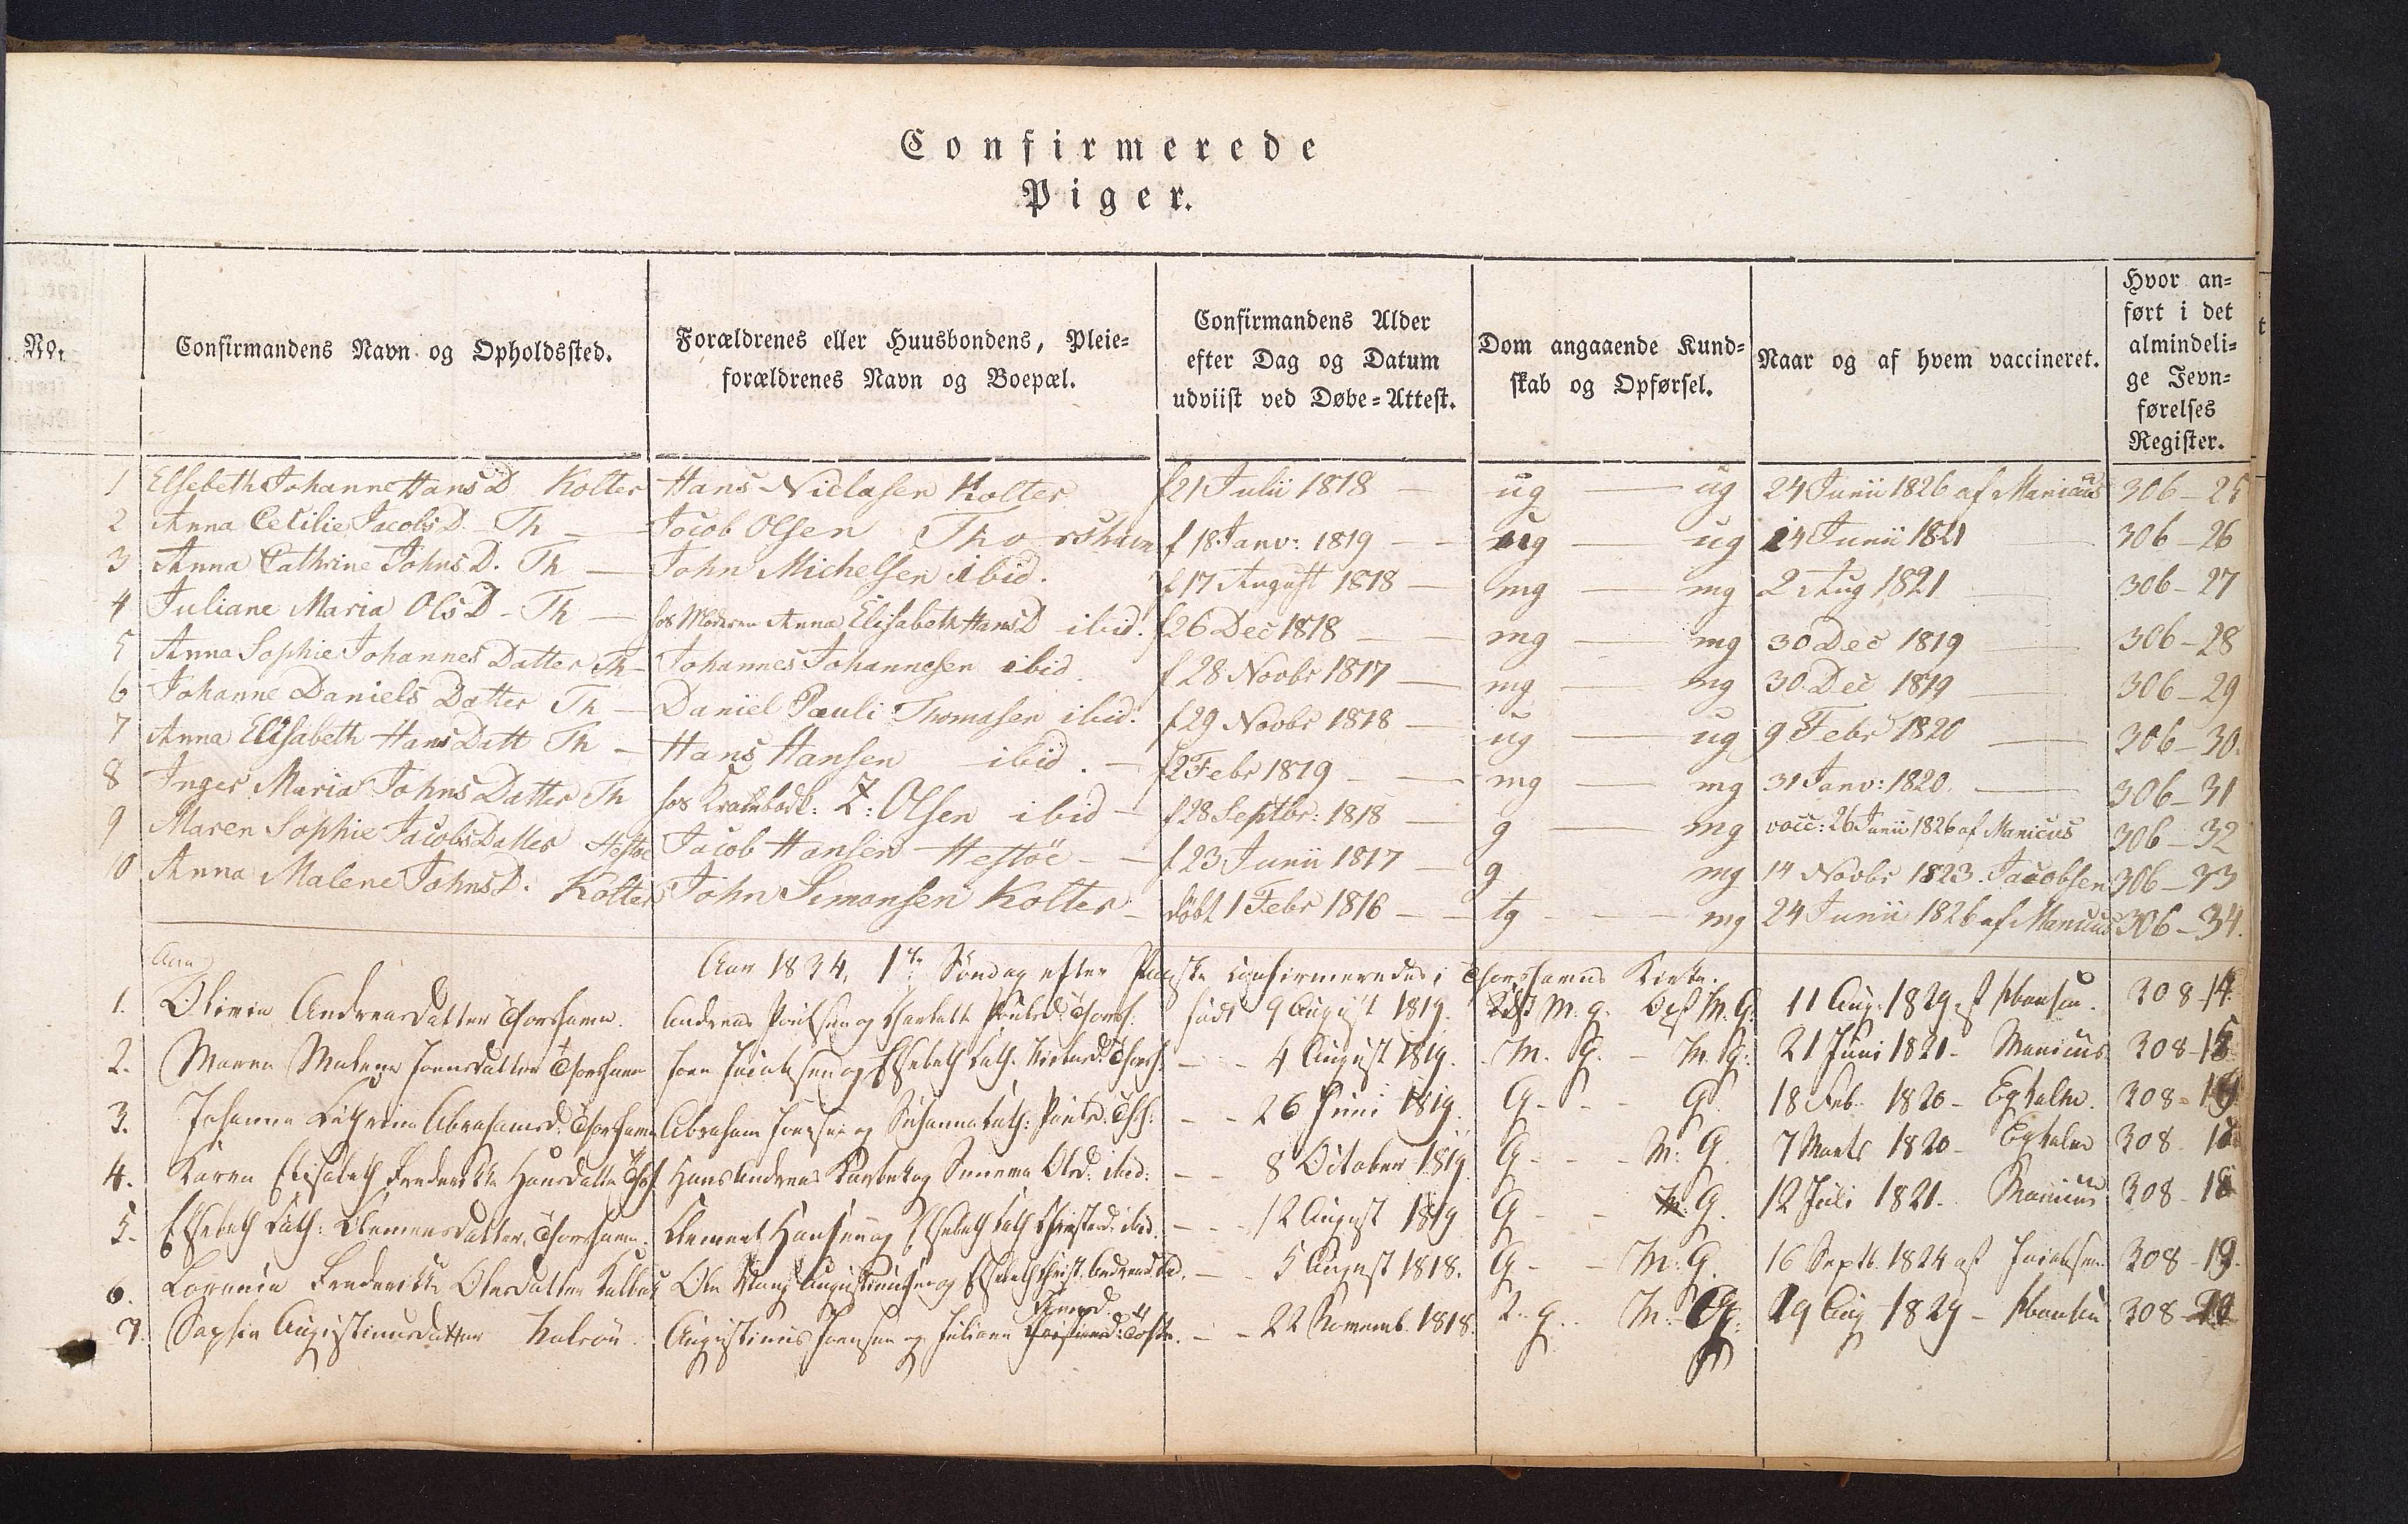 Confirmerede
Piger.
No.
Confirmandens Navn og Opholdssted.
Forældrenes eller Huusbondens, Pleie=
forældrenes Navn og Boepæl.
Confirmandens Alder
efter Dag og Datum
udviist ved Døbe=Attest.
Dom angaaende Kund=
skab og Opførsel.
Naar og af hvem vaccineret.
Hvor an=
ført i det
almindeli=
ge Jevn=
førelses
Register.
1 Elsebeth Johanne Hans D Kolter Hans Niclasen Kolter f 21 Julii 1818 ug ug 24 Junii 1826 af Manicus 306-25
2 Anna Cecilie Jacobs D. Th Jacob Olsen Thorshavn f 18 Janv: 1819 ug ug 14 Junii 1821 306-26
3 Anna Cathrine Johns D. Th John Michelsen ibid. f 17 August 1818 mg mg 2 Aug 1821 306-27
4 Juliane Maria Ols D - Th hos Moderen Anna Elisabeth Hans D ibid. f 26 Dec 1818 mg mg 30 Dec 1819 306-28
5 Anna Sophie Johannes Datter Th Johannes Johannesen ibid f 28 Novbr 1817 mg mg 30 Dec 1819 306-29
6 Johanne Daniels Datter Th Daniel Pauli Thomasen ibid. f 29 Novbr 1818 ug ug 9 Febr 1820 306-30.
7 Anna Elisabeth Hans Datt Th Hans Hansen ibid. f 2 Febr 1819 mg mg 31 Janv: 1820. 306-31
8 Inger Maria Johns Datter Th hos Krambodk: Z: Olsen ibid f 28 Septbr: 1818 g mg vacc: 26 Junii 1826 af Manicus 306-32
9 Maren Sophie Jacobs Datter Hestøe Jacob Hansen Hestøe f 23 Junii 1817 g mg 14 Novbr 1823. Jacobsen 306-33
10 Anna Malene Johns D. Kolter John Simonsen Kolter døbt 1 Febr 1816 tg mg 24 Junii 1826 af Manicus 306-34.
Aar 1834, 1te Søndag efter Paaske confirmeredes i Thorshavns Kirke.
1. Olivia Andreasdatter Thorshavn. Andreas Poulsen og Thorsh: født 9 August 1819. M. g. M. G. 11 Aug. 1829 af 308-14.
2. Maren Malene Joensdatter Thorshavn Joen Jacobsen og Elsebeth Cath. Thorsh. - - 4 August 1819. M. G. - M. G. 21 Juni 1821 - Manicus 308-15
3. Johanne Cathrina Abrahamsd. Thorshavn Abraham Joensen og Susanna Cath: - - 26 Juni 1819. G - - G. 18 Feb. 1820 - Egholm. 308-16
4. Karen Elisabeth Frederikke Hansdatter Hans Andreas og Sunneva Olsd. ibid: - - 8 October 1819 G - - M. G. 7 Marts 1820 - Egholm 308-
5. Elsebeth Cath: Clemensdatter, Thorshavn. Clement Hansen og Elsebeth Cath ibid. - - 12 August 1819 G - - G. 12 Juli 1821. Manicus 308-18
6. Frederikke Olesdatter Ole Augustinussen og Elsebeth Christ. Andreasd. - - 5 August 1818. G - - M: G. 16 Septb. 1824 af Jacobsen 308-19.
7. Sophie Augustinusdatter Augustinus Joensen og Juliane - - 22 Novemb. 1818. T. g. M. G. 19 Aug 1829 308-